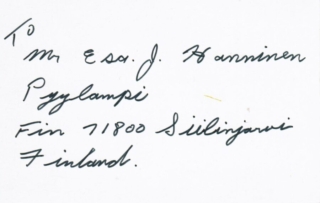 To
Mr Esa. J. Hanninen
Pyylampi
Fin 71800 Siilinjarvi
Finland.